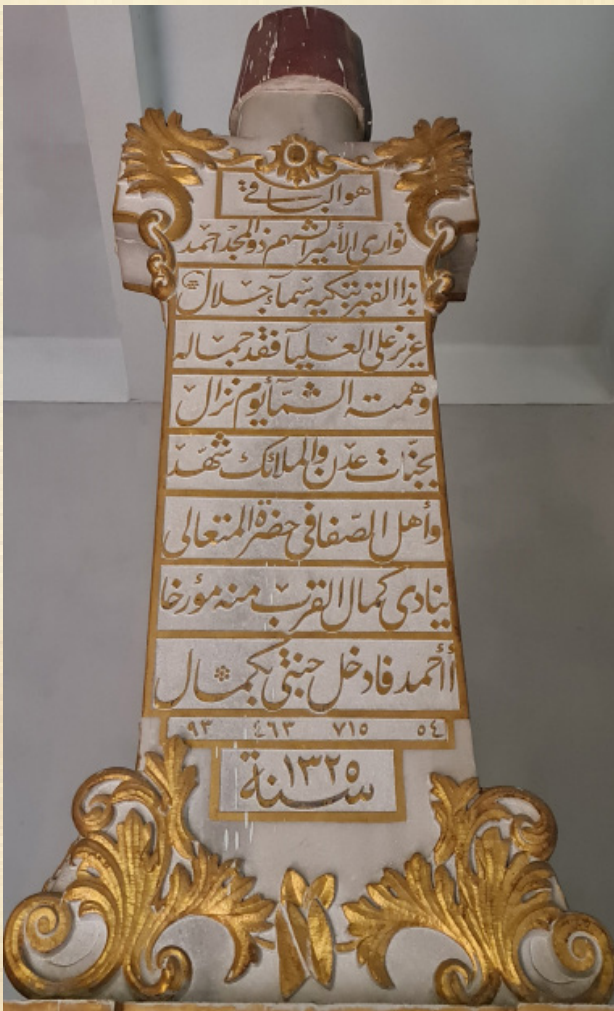 هو الباقي
توارى الأمير الشهم ذو المجد احمد
بذا القبر تبكيه سمآء جلال
عزيز على العليآ فقد جماله
وهمته الشمآ يوم نزال
بجنّات عدن والملائك شهّد
وأهل الصّفا في حضرة المتعالى
ينادى كمال القرب منه مؤرخا
أأحمد فادخل جنتى بكمال
٥٤ ٧١٥ ٤٦٣ ٩٣
سنة ١٣٢٥